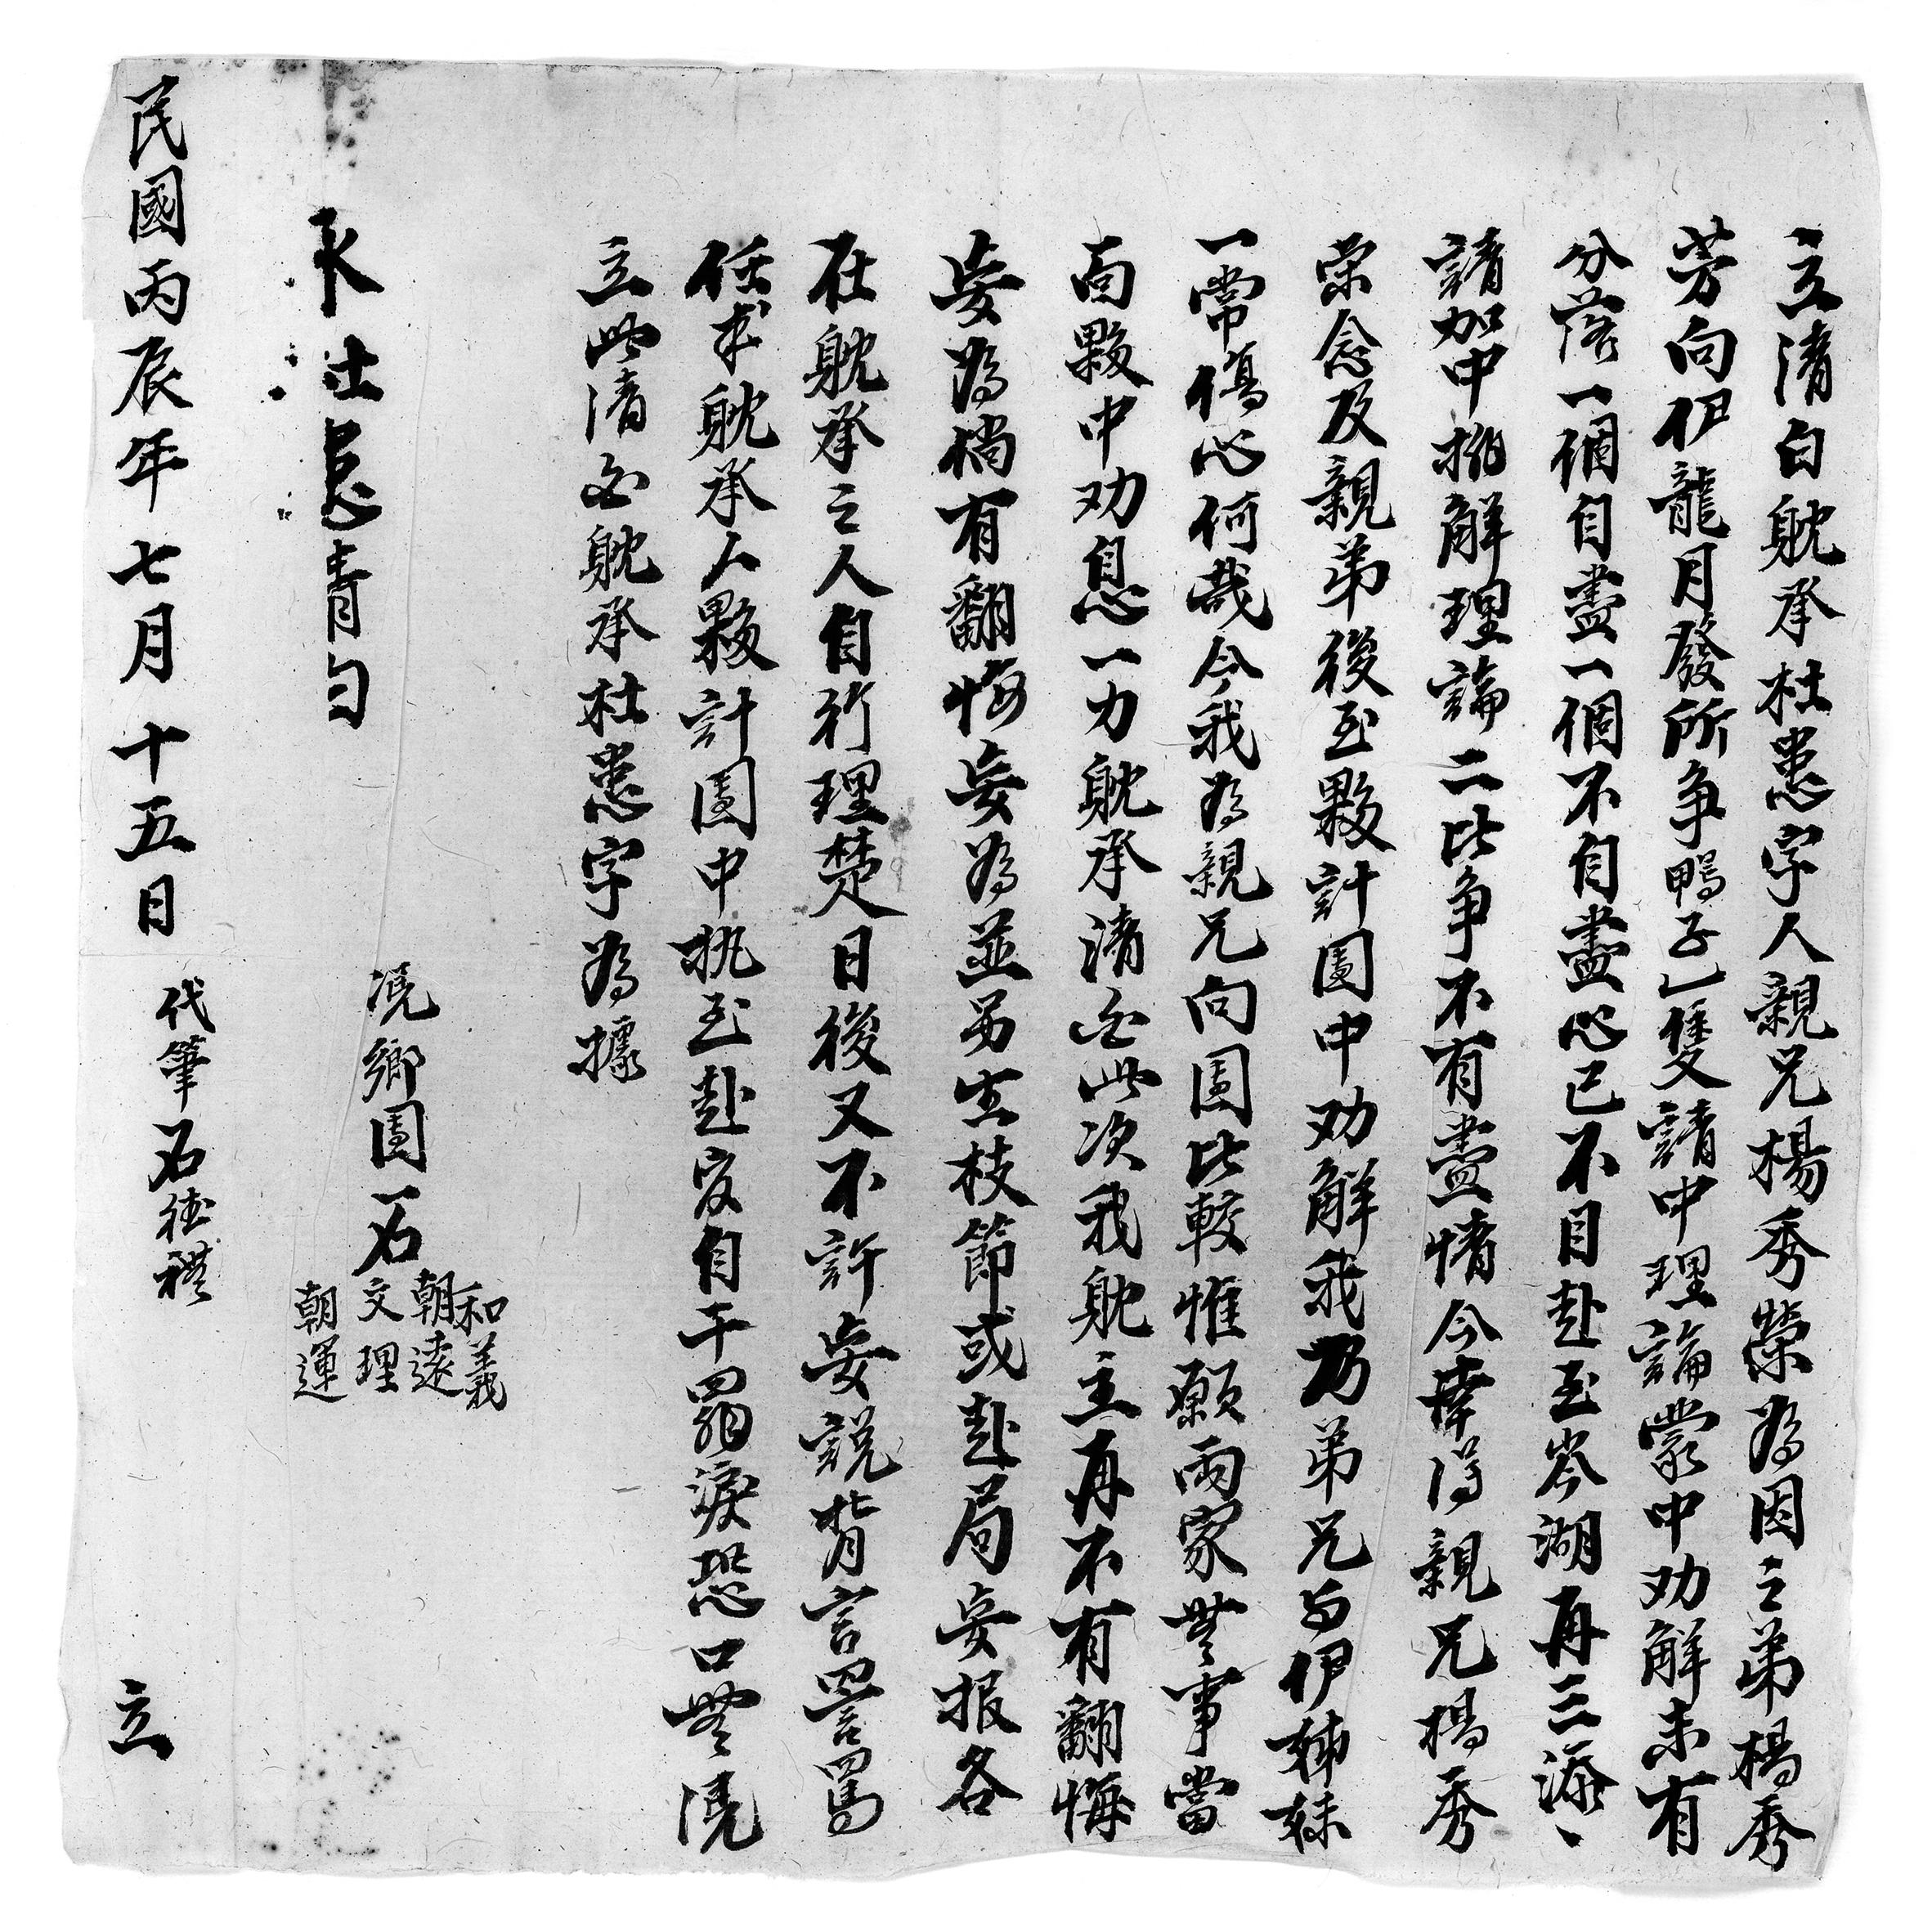 立清白躭承杜患字人親兄楊秀榮為因之弟楊秀
芳向伊龍月發所争鴨子乚隻請中理論蒙中劝解未有
分落一個自盡一個不自盡心已不目赴至岑湖再三添、
請加中推解理論二比争不有盡情今幸得親兄楊秀
荣念及親弟後至夥計園中劝解我乃弟兄与伊姊妹
一常傷心何哉今我為親兄向園比較惟願兩家無事當
面夥中劝息一力躭承清白此次我躭主再不有翻悔
妄為倘有翻悔妄為並另生枝節或赴局妄报各
在躭承之人自行理楚日後又不許妄説背言詈罵
任求躭承人夥計園中执至赴官自干罪淚恐口無凴
立此清白躭承杜患字為據
永杜患清白
凴鄉園石 和義 朝遠 文理 朝運
代筆石德禮
民國丙辰年七月十五日 立